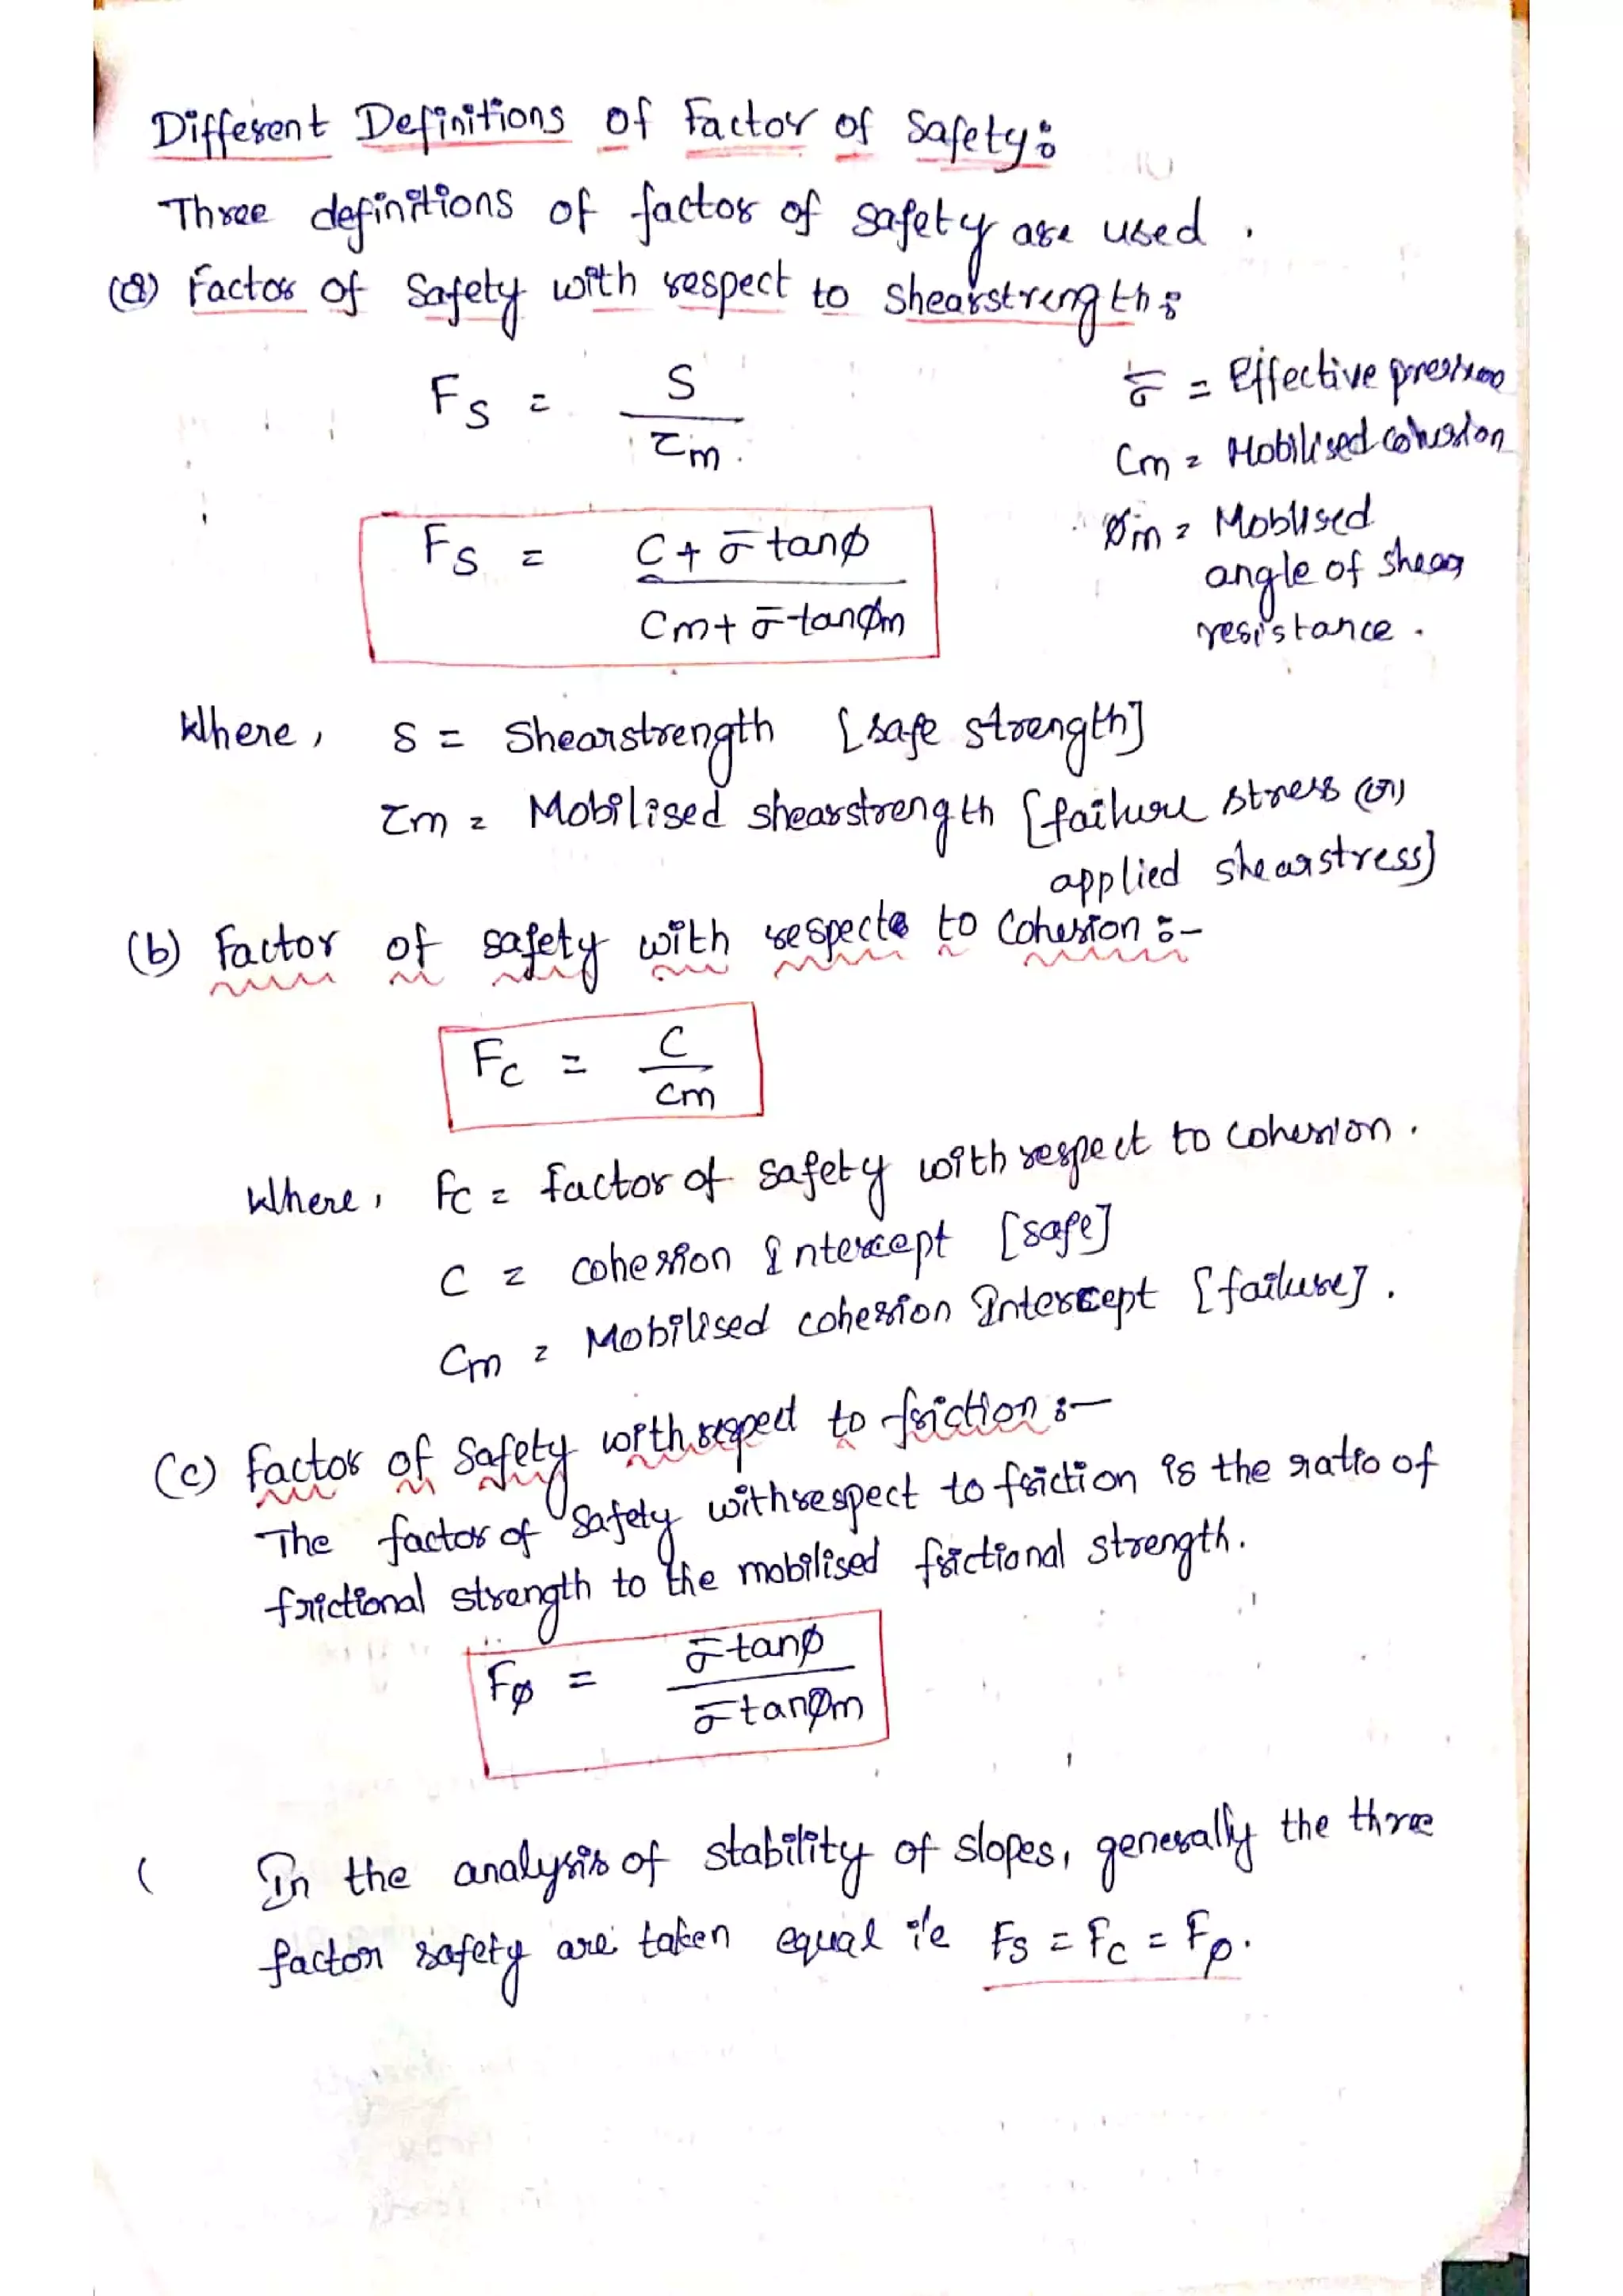 Different Definitions of Factor of Safety:
Three definitions of factor of safety are used.
(a) Factor of Safety with respect to Shearstrength:
Fs = S / τm
σ̄ = Effective pressure
Cm = Mobilised cohesion
Øm = Moblised angle of shear resistance.
Fs = C + σ̄ tanø / Cm + σ̄ tanøm
Where, S = Shearstrength [safe strength]
τm = Mobilised shearstrength [failure stress (or)
applied shearstress]
(b) Factor of safety with respecte to Cohesion :-
Fc = C / Cm
Where, Fc = factor of Safety with respect to cohesion.
C = cohesion Intercept [safe]
Cm = Mobilised cohesion Intercept [failure].
(c) Factor of Safety with respect to friction :-
The factor of Safety with respect to friction is the ratio of
frictional strength to the mobilised frictional strength.
Fø = σ̄ tanø / σ̄ tanøm
( In the analysis of stability of slopes, generally the three
factor safety are taken equal i'e Fs = Fc = Fø.